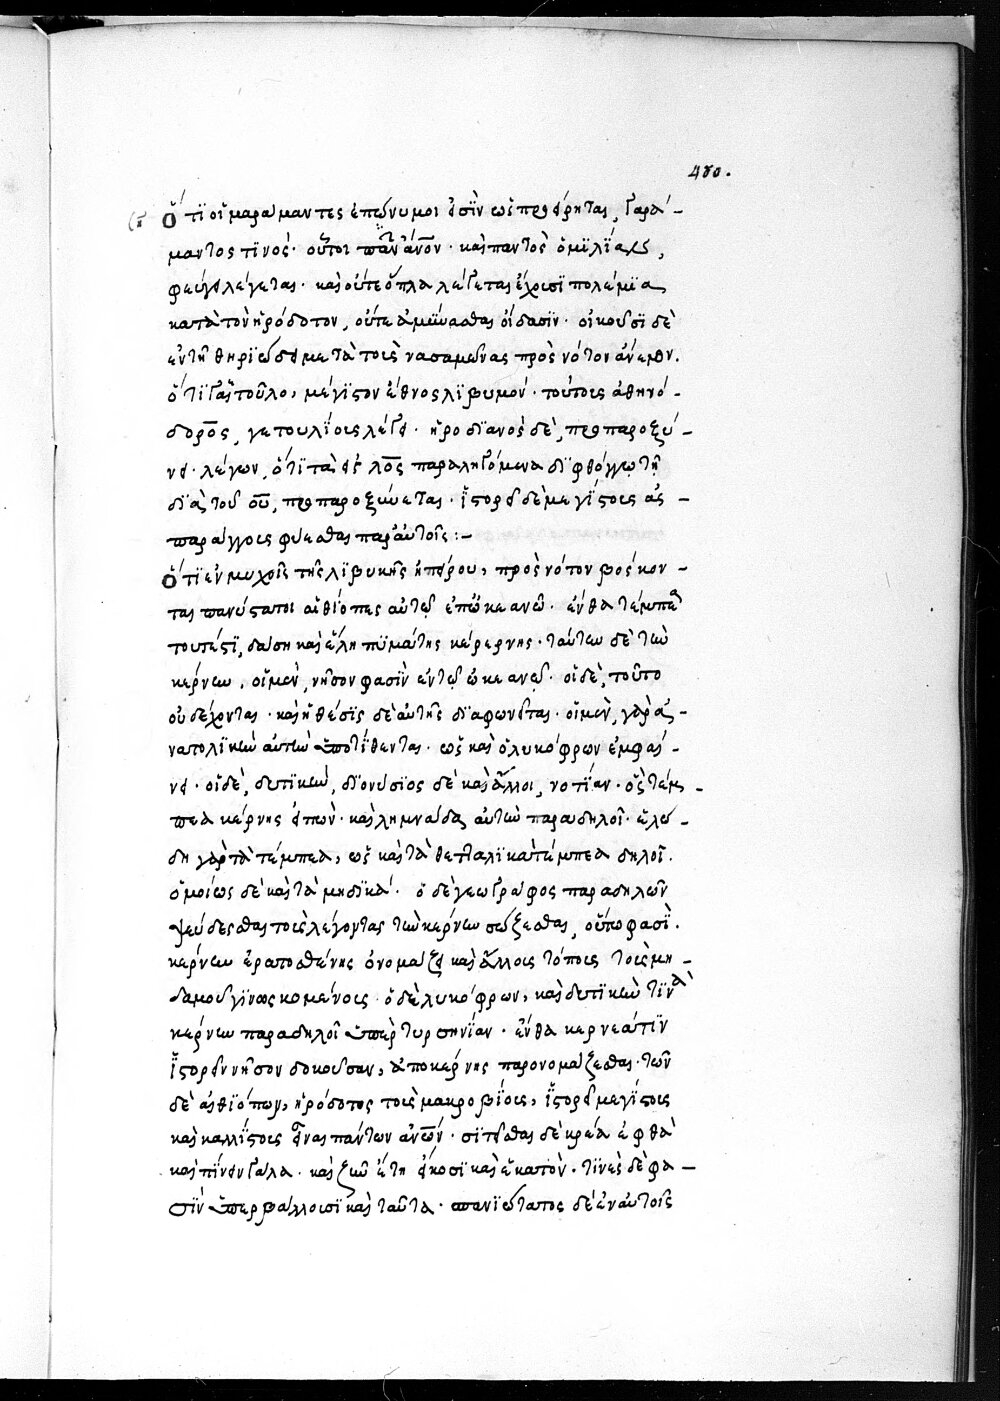 480.
Ὅτι οἱ μαραμαντες ἐπώνυμοι εἰσὶν ὡς προείρηται, Γαρά-
μαντος τινός· οὗτοι πάντα ἄνον· καὶ παντὸς ὁμιλίας,
φεύγειν λέγεται· καὶ οὔτε ὅπλα λέγεται ἔχουσι πολέμια
κατὰ τὸν ἡρόδοτον, οὔτε ἀμύνασθαι οἴδασιν· οἰκοῦσι δὲ
ἐν τῇ θηριώδει μετὰ τοὺς νασαμῶνας πρὸς νότον ἄνεμον.
ὅτι Γαιτοῦλοι, μέγιστον ἔθνος λιβυμόν· τούτους ἀθηνό-
δορος, γετουλίους λέγει· ἡροδιανὸς δὲ, προπαροξύ-
νει· λέγων, ὅτι τὰ εἰς λος παραληγόμενα διφθόγγῳ τῇ
διὰ τοῦ ου, προπαροξύνεται· ἱστορεῖ δὲ μεγίστους ἀσ-
παράγγους φύεσθαι παρ' αὐτοῖς :-
Ὅτι ἐν μυχοῖς τῆς λιβυκῆς ἠπείρου, πρὸς νότον βόσκον-
ται πανύστατοι αἰθίοπες αὐτῷ ἐπ' ὠκεανῷ· ἔνθα τέμπεα
τουτέστι, δάση καὶ ἕλη πυμάτης κέρερνης· ταύτην δὲ τὴν
κέρνην, οἱ μὲν, νῆσον φασὶν ἐν τῷ ὠκεανῷ· οἱ δὲ, τοῦτο
οὐ δέχονται· καὶ ἡ θέσις δὲ αὐτῆς διαφωνεῖται· οἱ μὲν, γὰρ ἀ-
νατολικὴν αὐτὴν ὑποτίθενται· ὡς καὶ ὁ λυκόφρων ἐμφαί-
νει· οἱ δὲ, δυτικὴν, διονύσιος δὲ καὶ ἄλλοι, νοτίαν· ὃς τέμ-
πεα κέρνης εἰπὼν· καὶ λημναίδα αὐτὴν παραδηλοῖ· ἑλώ-
δη γὰρ τὰ τέμπεα, ὡς καὶ τὰ θετταλικὰ τέμπεα δηλοῖ.
ὁμοίως δὲ καὶ τὰ μηδικά· ὁ δὲ γεωγράφος παραδηλῶν
ψεύδεσθαι τοὺς λέγοντας τὴν κέρνην σώζεσθαι, οὕτω φασί.
κέρνην ἐρατοσθένης ὀνομάζει καὶ ἄλλοις τόποις τοὺς μη-
δαμοῦ γινωσκομένους· ὁ δὲ λυκόφρων, καὶ δυτικὴν τινὰ
κέρνην παραδηλοῖ ὑπὲρ τυρσηνίαν· ἔνθα κερνεάτιν
ἱστορεῖν νῆσον δοκοῦσαν, ἀπὸ κέρνης παρονομάζεσθαι· τῶν
δὲ αἰθιόπων, ἡρόδοτος τοὺς μακροβίους, ἱστορεῖ μεγίστους
καὶ καλλίστους εἶναι πάντων ἀνῶν· σιτεῖσθαι δὲ κρέα ἑφθὰ
καὶ πίνειν γάλα· καὶ ζῆν ἔτη εἴκοσι καὶ ἑκατὸν· τινὲς δὲ φα-
σὶν ὑπερβάλλουσι καὶ ταῦτα· σπανιώτατος δὲ ἐν αὐτοῖς